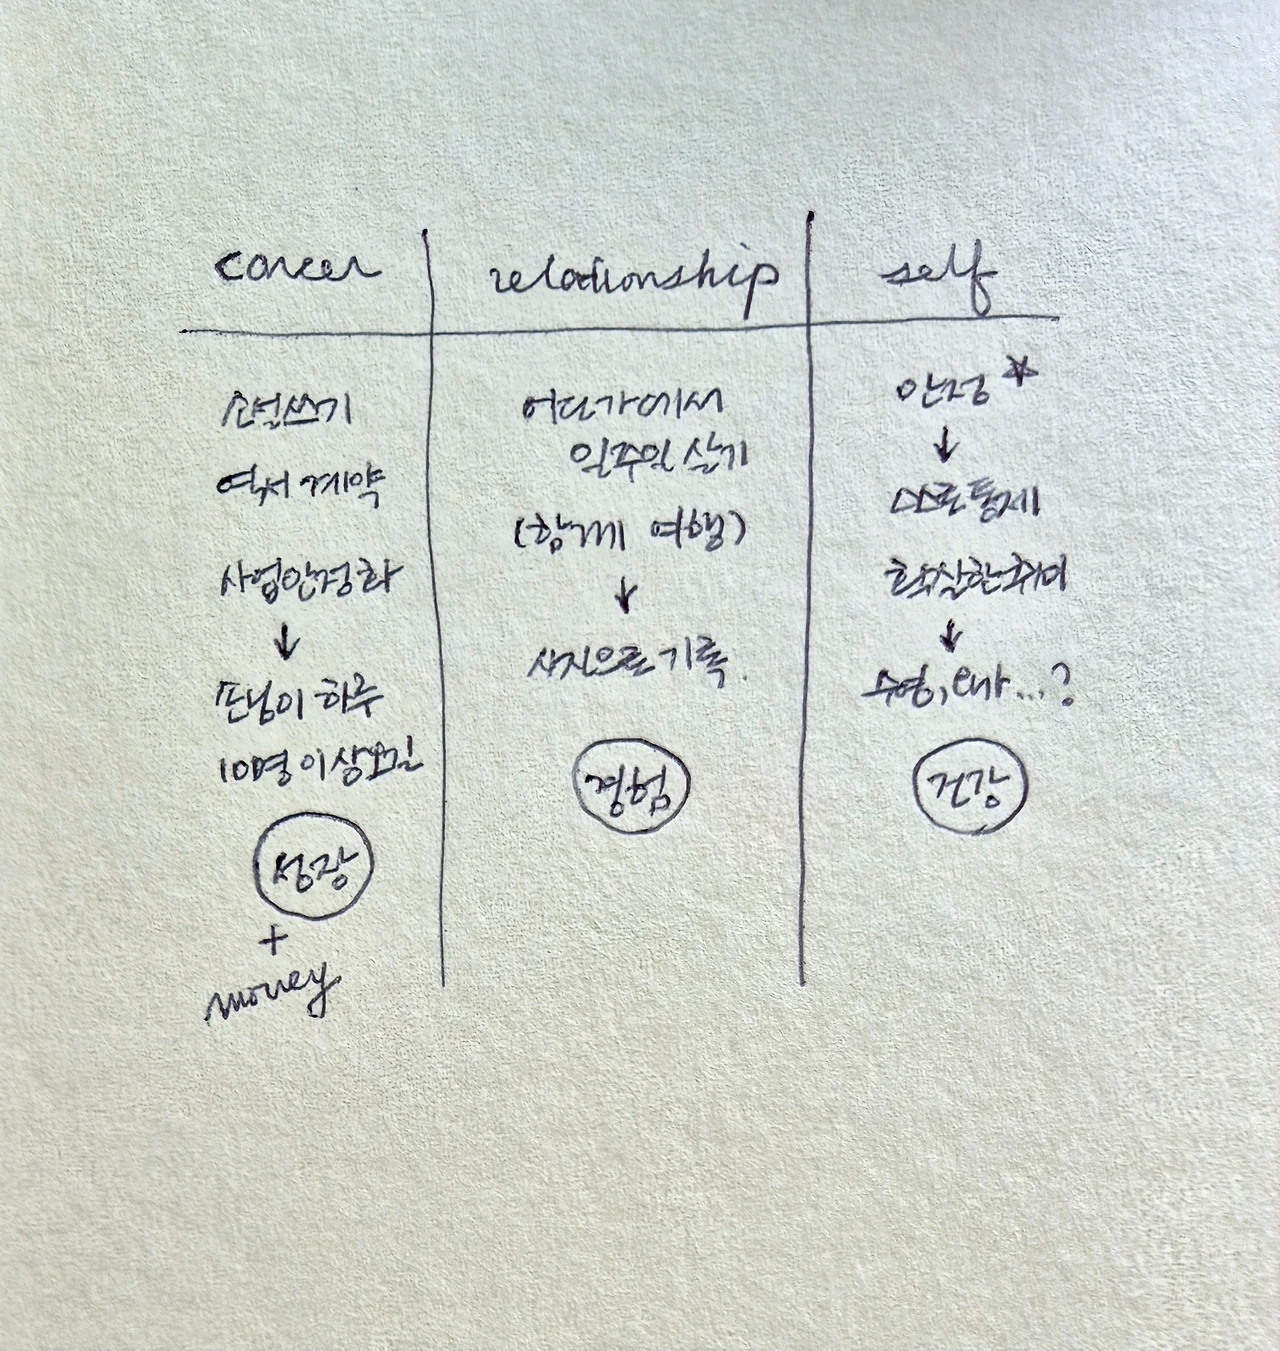 career
소설쓰기
역서 계약
사업안정화
↓
손님이 하루
10명 이상오길
성장
+
money
relationship
어딘가에서
일주일 살기
(함께 여행)
↓
사진으로 기록.
경험
self
안정 ☆
↓
스스로 통제
확실한 취미
↓
수영, 요가...?
건강